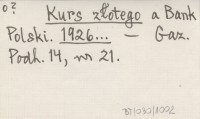 o?
Kurs złotego a Bank
Polski. 1926... — Gaz.
Podh. 14, nr 21.
BJ/030/1002